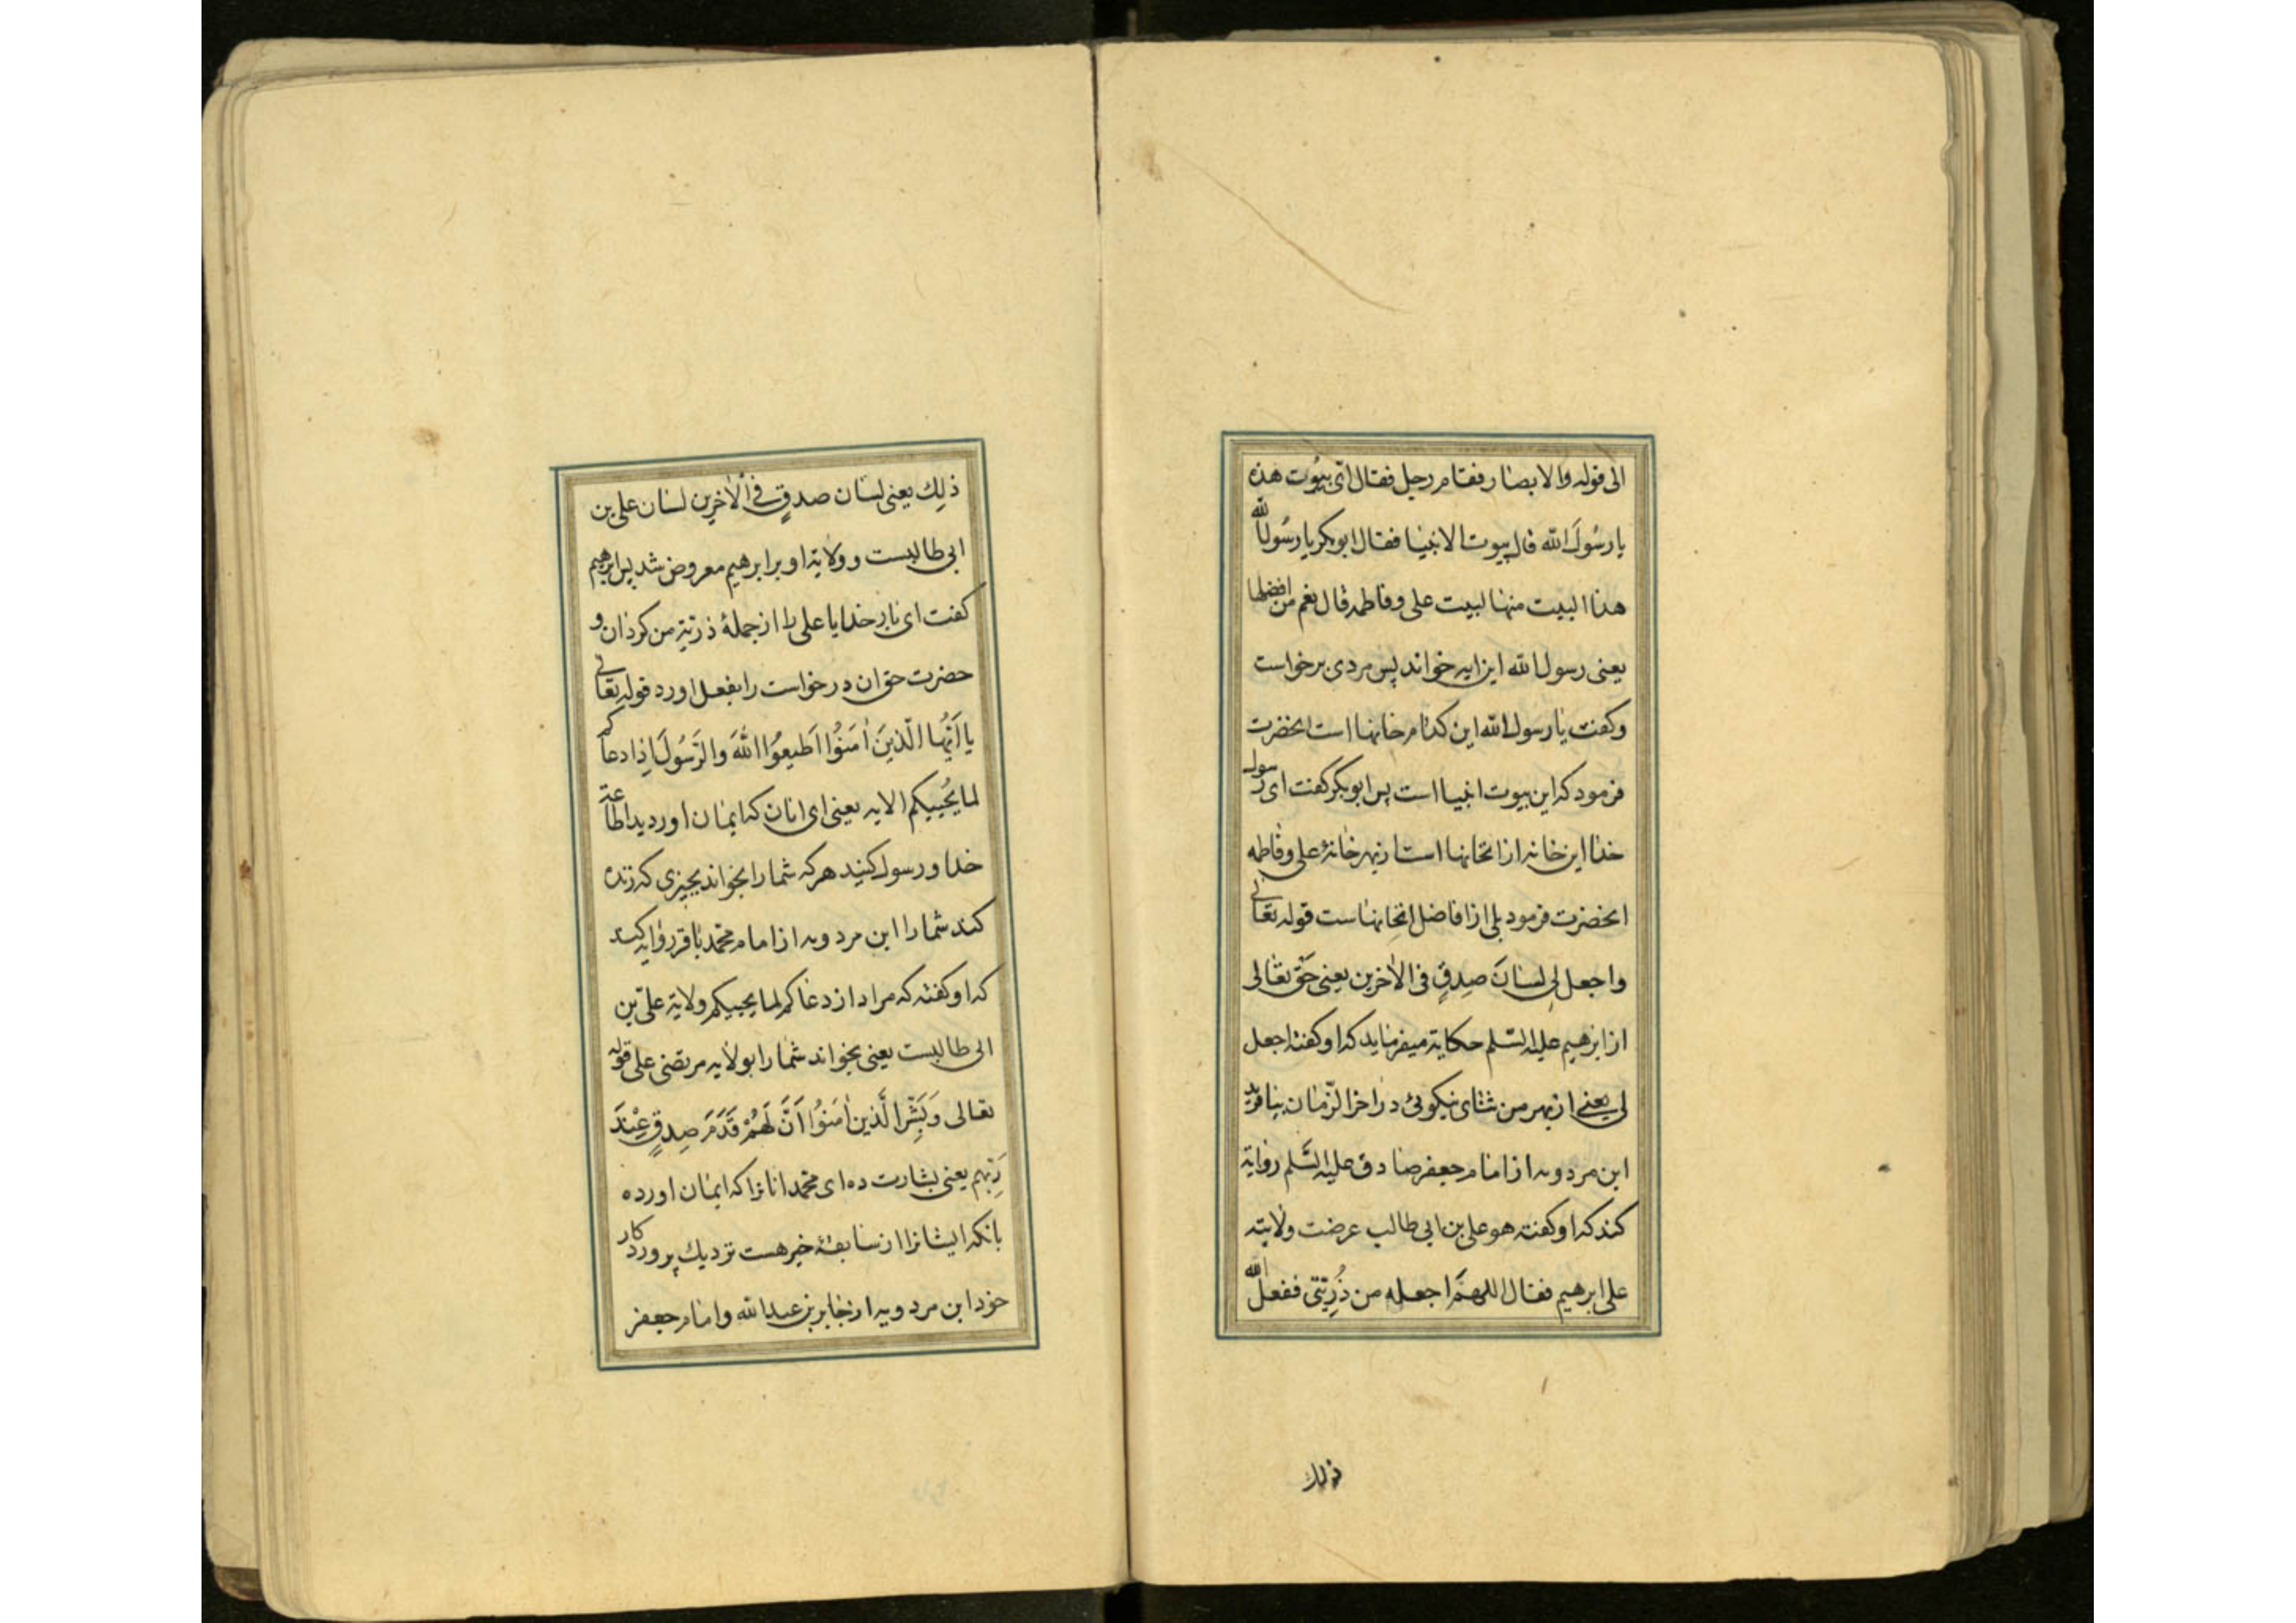 الی قوله والابصار فقام رجل فقال ای بیوت هذه
یا رسول الله قال بیوت الانبیا فقال ابوبکر یا رسول الله
هذا البیت منها لبیت علی و فاطمه قال نعم من افضلها
یعنی رسول الله این ایه خواند پس مردی برخواست
و کفت یا رسول الله این کدام خانها است انحضرت
فرمود که این بیوت انبیا است پس ابوبکر کفت ای رسول
خدا این خانه از انخانها است از بهر خانهٔ علی و فاطمه
انحضرت فرمود بلی از افاضل انخانهاست قوله تعالی
واجعل لی لسانَ صِدقٍ فی الاخرین یعنی حق تعالی
از ابرهیم علیه السّلم حکایة میفرماید که او کفته اجعل
لی یعنی از بهر من ثنای نیکوئی در اخر الزّمان بیافرید
ابن مردویه از امام جعفر صادق علیه السّلم روایة
کند که او کفته هو علی بن ابی طالب عرضت ولایته
علی ابرهیم فقال اللهمَّ اجعله من ذُرِیّتی ففعل الله
ذلك
ذلِك یعنی لسان صدقٍ فی الاخرین لسان علی بن
ابی طالبست و ولایة او بر ابرهیم معروض شد پس ابرهیم
کفت ای بار خدایا علی را از جملهٔ ذریّة من کردان و
حضرت حق ان درخواست را بفعل اورد قوله تعالی
یا اَیُّهَا الَّذینَ اٰمَنُوا اَطیعُوا اللّٰهَ والرَّسُولَ اِذا دعاکم
لما یُحییکم الایه یعنی ای انان که ایمان اوردید اطاعة
خدا و رسول کنید هر که شما را بخواند بچیزی که زنده
کند شما را ابن مردویه از امام محمد باقر روایه کند
که او کفته که مراد از دعاکم لما یحییکم ولایة علیّ بن
ابی طالبست یعنی بخواند شما را بولایه مرتضی علی قوله
تعالی وَبَشِّرِ الَّذین اٰمَنُوا اَنَّ لَهُمْ قَدَمَ صِدقٍ عِنْدَ
رَبِّهم یعنی بشارت ده ای محمد انانرا که ایمان اورده
بانکه ایشانرا از سابقهٔ خیر هست نزدیك پروردکار
خود ابن مردویه از جابر بن عبدالله و امام جعفر